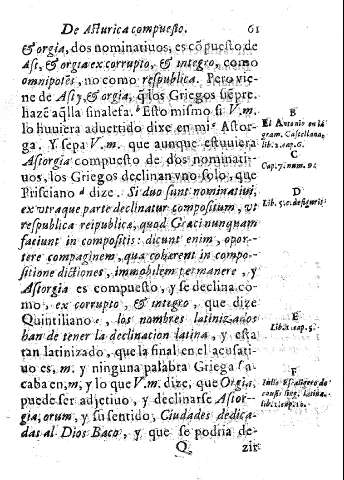 De Asturica compuesto. 61
& orgia, dos nominatiuos, es cõpuesto de
Ast, & orgia ex corrupto, & integro, como
omnipotẽs, no como respublica. Pero vie-
ne de Asty, & orgia, q̃ los Griegos siẽpre
hazẽ aq̃lla sinalefa. Esto mismo si V.m.
lo huuiera aduertido dixe en mi Astor-
ga. Y sepa V.m. que aunque estuuiera
Astorgia compuesto de dos nominati-
uos, los Griegos declinan vno solo, que
Prisciano dize. Si duo sunt nominatiui,
ex vtraque parte declinatur compositum, vt
respublica reipublicæ, quod Græci nunquam
faciunt in compositis: dicunt enim, opor-
tere compaginem, qua coherent in compo-
sitione dictiones, immobilem permanere, y
Astorgia es compuesto, y se declina co-
mo, ex corrupto, & integro, que dize
Quintiliano, los nombres latinizados
han de tener la declinacion latina, y està
tan latinizado, que la final en el acusati-
uo es, m, y ninguna palabra Griega se a-
caba en, m, y lo que V.m. dize, que Orgia,
puede ser adjetiuo, y declinarse Astor-
gia, orum, y su sentido, Ciudades dedica-
das al Dios Baco, y que se podria de-
Q zir
B
El Antonio en la
gram. Castellana,
lib. 2. cap. 6.
C
Cap. 7. num. 9.
D
Lib. 5. c. de figuris.
E
Lib. 1. cap. 5.
F